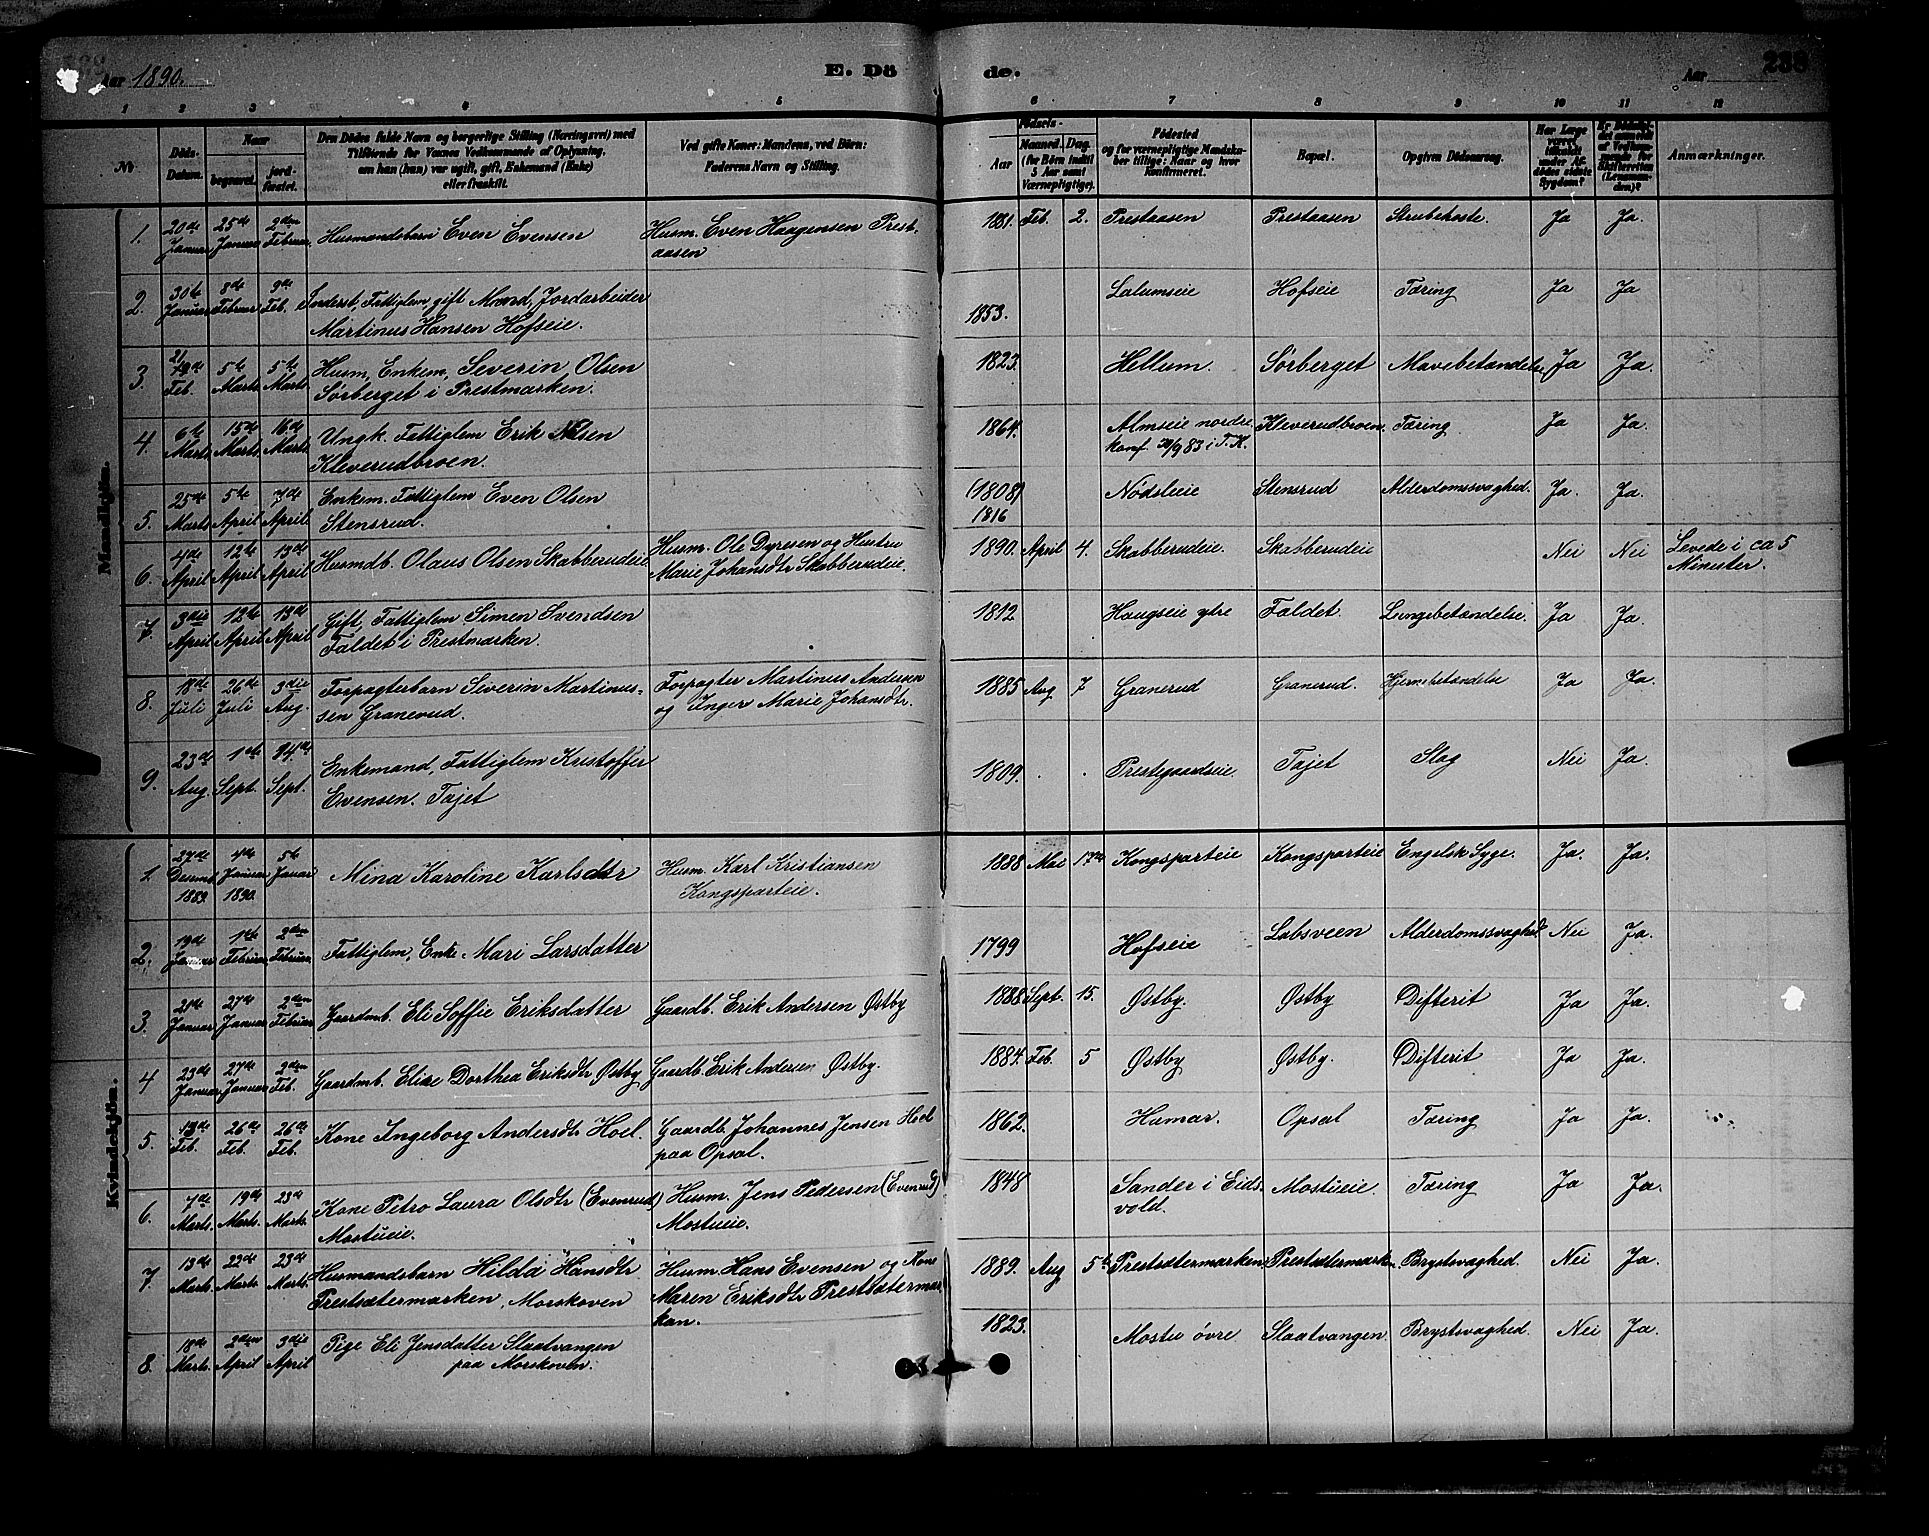 Aar 1890.
E. Dö
de.
Aar
233
1 2 3 4 5 6 7 8 9 10 11 12
No
Döds-Datum.
Naar
begravet.
jord-fæstet.
Den Dödes fulde Navn og borgerlige Stilling (Næringsvei) med
Tilföiende for Voxnes Vedkommende af Oplysning,
om han (hun) var ugift, gift, Enkemand (Enke)
eller fraskilt.
Ved gifte Koner: Mandens, ved Börn:
Faderens Navn og Stilling.
Fødsels-
Aar
Maaned. Dag.
(for Börn indtil
5 Aar samt
Værnepligtige).
Födested
og for værnepligtige Mandska-
ber tillige: Naar og hvor
Konfirmeret.
Bopæl.
Opgiven Dödsaarsag.
Har Læge
været
tilkaldt
under Af-
dödes sidste
Sygdom?
Anmærkninger.
Mandkjön.
1. 20de Januar 25de Januar 2den Februar Husmandsbarn Even Evensen Husm. Even Haagensen Prest- 1881. Feb. 2. Prestaasen Prestaasen Strubehoste. Ja Ja.
aasen
2. 30te Januar 8de Februar 9de Feb. Inderst, Fattiglem, gift Mand, Jordarbeider 1853. Lalumseie Hofseie Tæring Ja Ja
Martinus Hansen Hofseie.
3. 21 19de Feb. 5te Marts 5te Marts Husm, Enkem, Severin Olsen 1823. Hellum. Sørberget Mavebetændelse Ja Ja.
Sørberget i Prestmarken.
4. 6te Marts 15de Marts 16de Marts Ungk. Fattiglem Erik Nilsen 1864. Almseie nordre Kleverudbroen. Tæring Ja Ja.
Kleverudbroen. konf. 30/9 83 i T.K.
5. 25de Marts 5te April 7de April Enkem. Fattiglem Even Olsen (1808) Nødsleie Stensrud Alderdomssvaghed. Ja. Ja.
Stensrud. 1816
6. 4de April 12te April 13de April Husmdb. Olaus Olsen Skabberudeie Husm. Ole Dyresen og Hustru 1890. April 4. Skabberudeie. Skabberudeie Nei Nei Levede i ca 5
Marie Johansdtr Skabberudeie. Minuter.
7. 3die April 12te April 13de April Gift, Fattiglem Simen Svendsen 1812 Haugseie ytre Faldet. Lungebetændelse. Ja Ja.
Faldet i Prestmarken.
8. 18de Juli 26de Juli 3die Aug. Forpagterbarn Severin Martinus- Forpagter Martinus Andersen 1885 Aug 7 Granerud Granerud. Hjernebetændelse Ja Ja.
sen Granerud. og Inger Marie Johansdtr.
9. 23de Aug. 1ste Sept. 14de Sept. Enkemand, Fattiglem Kristoffer 1809. . . Prestegaardseie Tajet Slag Nei Ja.
Evensen. Tajet
Kvindekjön.
1 27de Decmb 1889. 4de Januar 1890. 5te Januar Mina Karoline Karlsdtr Husm. Karl Kristiansen 1888 Mai 17de Kongsparteie Kongsparteie Engelsk Syge. Ja. Ja.
Kongsparteie.
2. 19de Januar 1ste Februar 2den Februar Fattiglem, Enke. Mari Larsdatter 1799 Hofseie Labsveen Alderdomssvaghed Nei Ja.
3. 21de Januar 27de Januar 2den Februar Gaardmb. Eli Soffie Eriksdatter Gaardb. Erik Andersen Østby 1888 Sept. 15. Østby. Østby Difterit Ja Ja.
4 23de Januar 27de Januar 2den Feb. Gaardmb. Elise Dorthea Eriksdtr Østby Gaardb. Erik Andersen Østby. 1884. Feb. 5 Østby Østby. Difterit Ja Ja.
5. 13de Feb. 26de Feb. 26de Feb. Kone Ingeborg Andersdtr Hoel. Gaardb. Johannes Jensen Hoel 1862. Hamar. Opsal Tæring Ja Ja.
paa Opsal.
6. 7de Marts. 19de Marts. 23de Marts. Kone Petro Laura Olsdtr (Evenrud) Husm. Jens Pedersen (Evenrud) 1848 Sander i Eids- Mostueie. Tæring Ja Ja.
Mostueie. Mostueie. vold.
7. 13de Marts. 22de Marts 23de Marts Husmandsbarn Hilda Hansdtr Husm. Hans Evensen og Kone 1889. Aug 5te Prestsætermarken Prestsætermarken. Brystsvaghed. Nei Ja.
Prestsætermarken, Morskoven Maren Eriksdtr Prestsætermar-
ken.
8. 18de Marts. 2den April 3die April Pige Eli Jensdatter Slaatvangen 1823. Mostu øvre Slaatvangen Brystsvaghed. Nei Ja.
paa Morskoven.